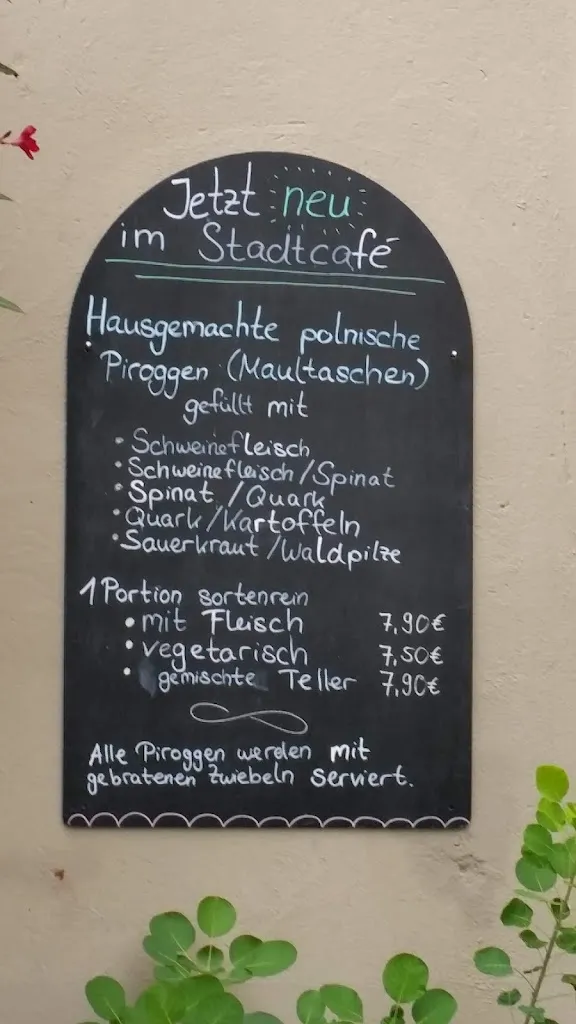 Jetzt neu
im Stadtcafé
Hausgemachte polnische
Piroggen (Maultaschen)
gefüllt mit
• Schweinefleisch
• Schweinefleisch/Spinat
• Spinat/Quark
• Quark/Kartoffeln
• Sauerkraut/Waldpilze
1 Portion sortenrein
• mit Fleisch 7,90€
• vegetarisch 7,50€
• gemischte Teller 7,90€
Alle Piroggen werden mit
gebratenen Zwiebeln serviert.